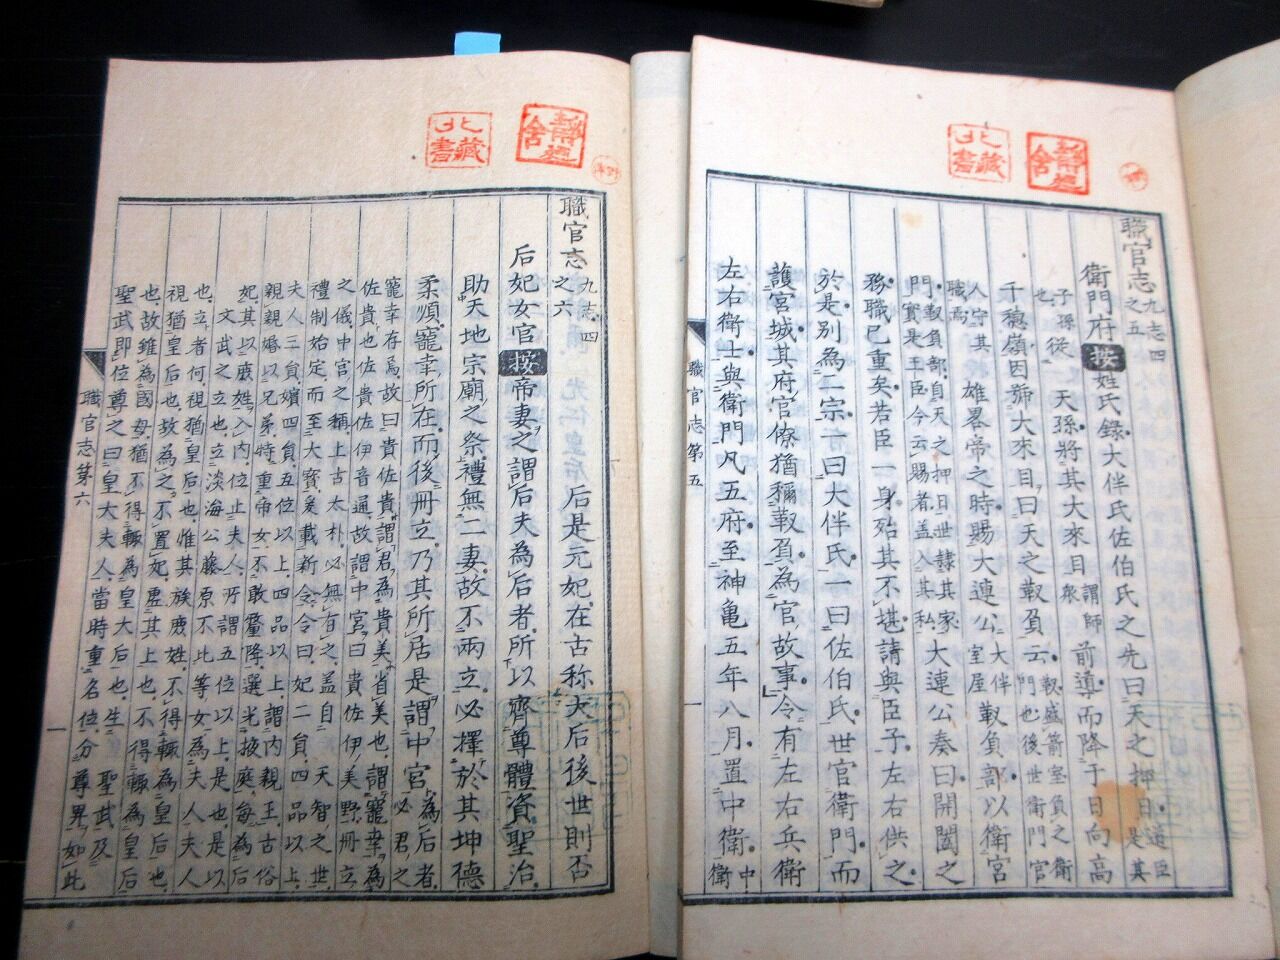 職官志 九志四之五
衛門府 按姓氏錄大伴氏佐伯氏之先曰天之押日 道臣是其
子孫從也 天孫將其大來目 謂師衆 前導而降于日向高
千穗嶺因號大來目曰天之靫負云 靫盛箭室負之衛門也後世衛門官
人守其職焉 雄畧帝之時賜大連公 大伴室屋 靫負部以衛宮
門 靫負部自天之押日世隷其家實是王臣今云賜者蓋入其私 大連公奏曰開闔之
務職已重矣若臣一身殆其不堪請與臣子左右供之
於是別為二宗一曰大伴氏一曰佐伯氏世官衛門而
護宮城其府官僚猶稱靫負為官故事令有左右兵衛
左右衛士與衛門凡五府至神亀五年八月置中衛 中衛
職官志第五 一
北藏書
職官志 九志四之六
后是元妃在古称大后後世則否
后妃女官 按帝妻之謂后夫為后者所以齊尊體資聖治
助天地宗廟之祭禮無二妻故不兩立必擇於其坤德
柔順寵幸所在而後冊立乃其所居是謂中宮 必君之為后者
寵幸存焉故曰貴佐貴謂君為貴美省美也謂寵幸為
佐貴也佐貴佐伊音通故謂中宮曰貴佐伊美野冊立
之儀中宮之稱上古太朴必無有之蓋自 天智之世
禮制始定而至大寳爰載新令令曰妃二員四品以上
夫人三員嬪四員五位以上四品以上謂內親王古俗
親親婚以兄弟特重帝女不敢釐降選光掖庭每為后
妃其以庶姓入內位止夫人所謂五位以上是也是以
文武之立也立淡海公藤原不比等女為夫人夫人
也立者何視猶皇后也惟其族庶姓不得輙為皇后也
視猶皇后也故為之不置妃虛其上也不得輙為皇后
也故雖為國母猶不得輙為皇大后也生 聖武及
聖武即位尊之曰皇大夫人當時重名位分尊畀如此
職官志第六 一
北藏書